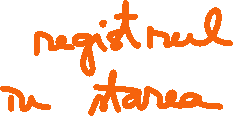 registrul
in starea